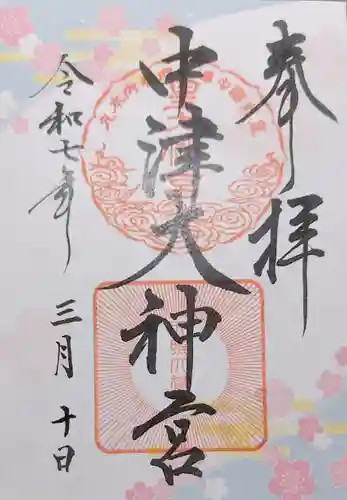 奉拝
中津大神宮
令和七年
三月十日